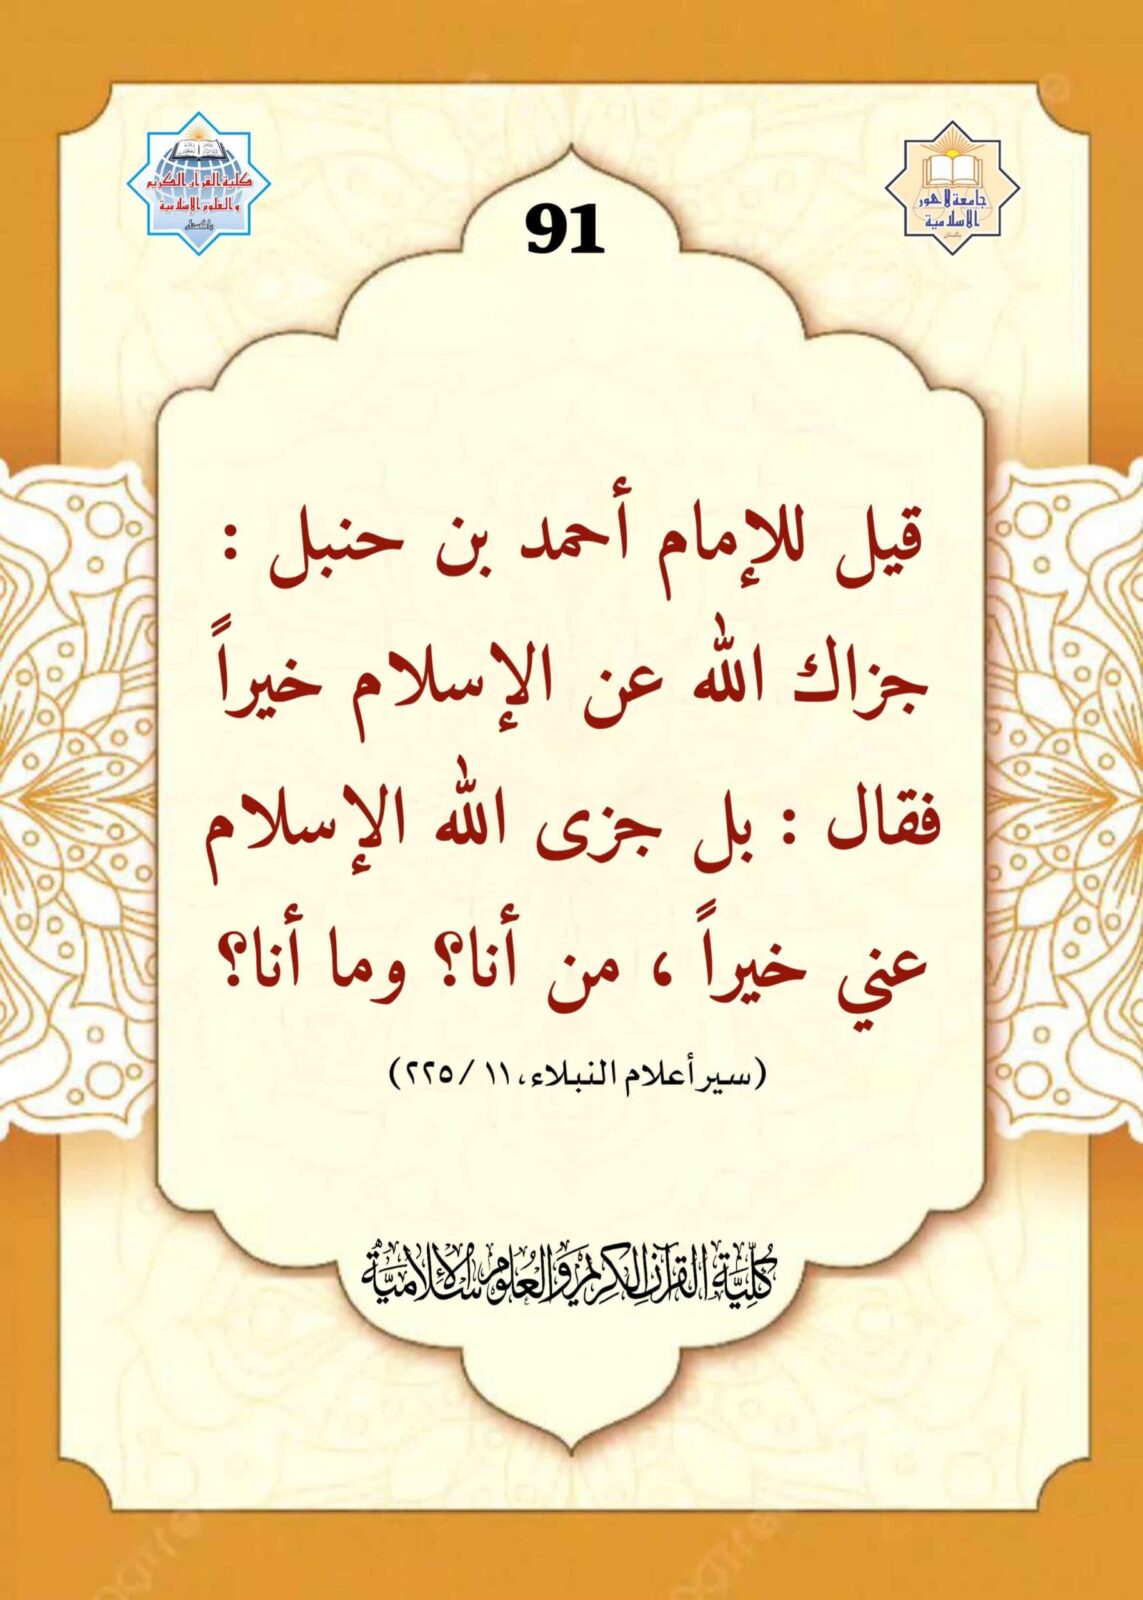 جامعة لاهور
الاسلامية
كلية القرآن الكريم
والعلوم الإسلامية
باكستان
91
قيل للإمام أحمد بن حنبل :
جزاك الله عن الإسلام خيراً
فقال : بل جزى الله الإسلام
عني خيراً ، من أنا؟ وما أنا؟
(سير أعلام النبلاء، ١١ /٢٢٥)
كُلِّيَّةُ القُرآنِ الكَرِيْمِ وَالْعُلُومِ الإِسْلَامِيَّةِ